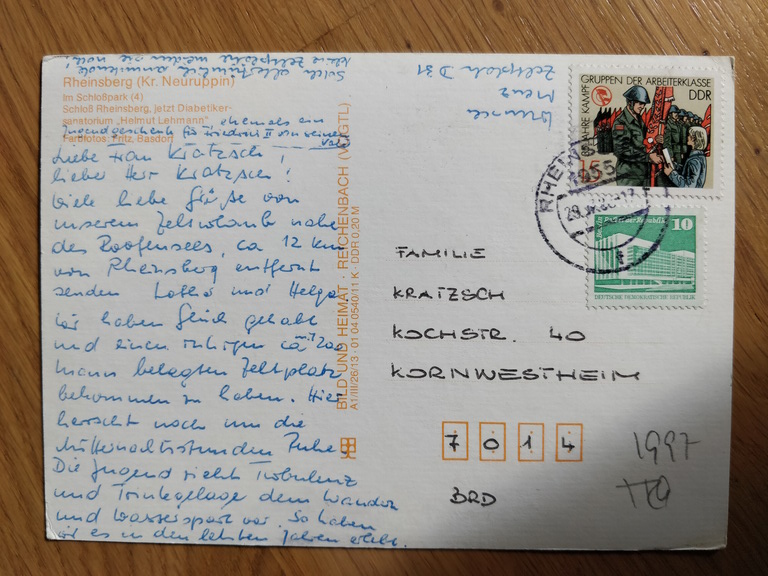 Solch altertümlich anmutende
Zeltplätze
Rheinsberg (Kr. Neuruppin)
Im Schloßpark (4)
Schloß Rheinsberg, jetzt Diabetiker-
sanatorium „Helmut Lehmann" ehemals ein
Jugendgeschenk für Friedrich II von seinem
Vater
Farbfotos: Fritz, Basdorf
Liebe Frau Kratzsch,
lieber Herr Kratzsch!
Viele liebe Grüße von
unserem Zelturlaub nahe
des Roofensees, ca 12 km
von Rheinsberg entfernt
senden Lothar und Helga
Wir haben Glück gehabt
und einen ruhigen ca mit 200
Mann belegten Zeltplatz
bekommen zu haben. Hier
herrscht noch um die
Mitternachtsstunden Ruhe.
Die Jugend zieht Turbulenz
und Trinkgelage dem Wandern
und Wassersport vor. So haben
wir es in den letzten Jahren erlebt.
BILD UND HEIMAT · REICHENBACH (VOGTL)
A1/III/26/13 · 01 04 0540/11 K · DDR 0,20 M
Menz
Zeltplatz D 31
KAMPFGRUPPEN DER ARBEITERKLASSE
DDR
15
RHEINSBERG
1955
10
Berlin, Palast der Republik
DEUTSCHE DEMOKRATISCHE REPUBLIK
FAMILIE
KRATZSCH
KOCHSTR. 40
KORNWESTHEIM
7 0 1 4
BRD
1997